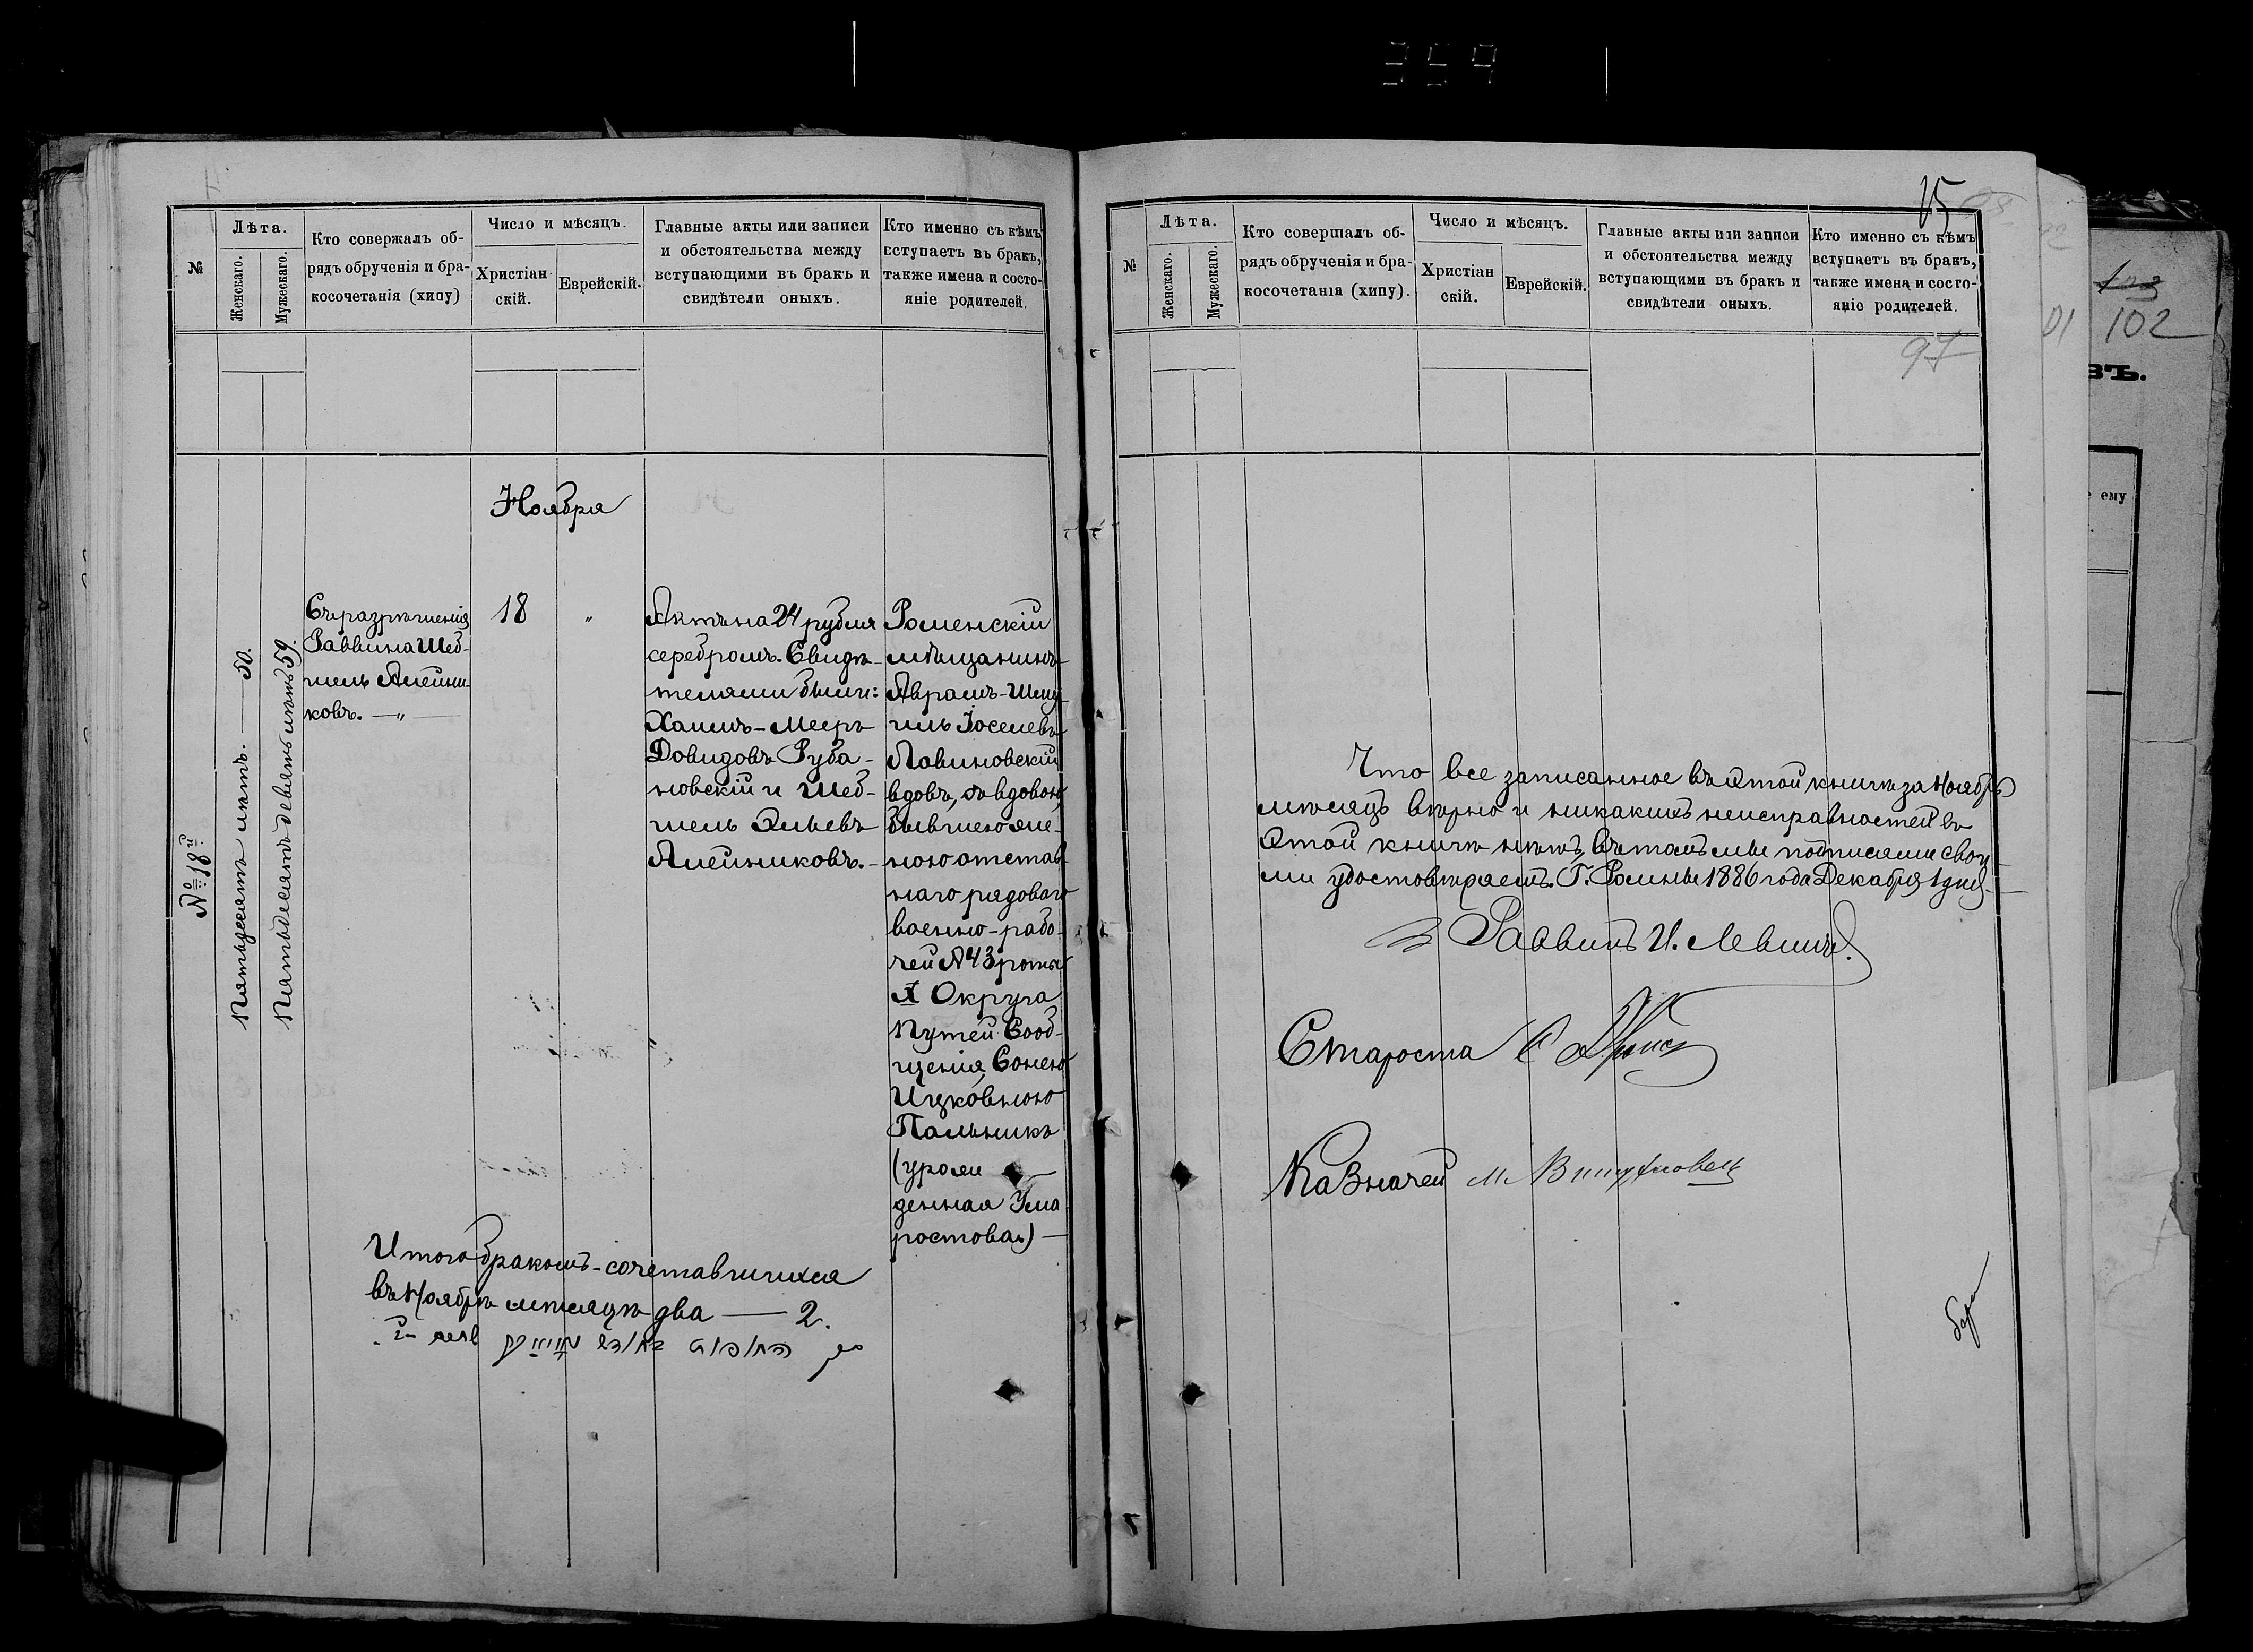 359
№
Лѣта.
Женскаго.
Мужескаго.
Кто совержалъ об-
рядъ обрученія и бра-
косочетанія (хипу)
Число и мѣсяцъ.
Христіан
скій.
Еврейскій.
Главные акты или записи
и обстоятельства между
вступающими въ бракъ и
свидѣтели оныхъ.
Кто именно съ кѣмъ
вступаетъ въ бракъ,
также имена и состо-
яніе родителей.
Ноября
№ 18й
Пятьдесятъ лѣтъ. — 50.
Пятьдесятъ девять лѣтъ 59.
Съ разрѣшенія
Раввина Шеб-
шель Алейни-
ковъ. — „ —
18
„
Актъ на 24 рубля
серебромъ. Свидѣ-
телями были:
Хаимъ-Мееръ
Довидовъ Руба-
новскій и Шеб-
шель Эльевъ
Алейниковъ. -
Роменскій
мѣщанинъ
Аврамъ-Шму
иль Іоселевъ
Ловиновскій
вдовъ, съ вдовою,
бывшею же-
ною отстав
наго рядоваго
военно-рабо-
чей № 43 роты
X Округа
Путей Сооб-
щенія, Сонею
Ицковною
Пальникъ
(урож
денная Ума
ростова) —
Итого бракомъ-сочетавшихся
въ Ноябрѣ мѣсяцѣ два — 2.
15
102
97
№
Лѣта.
Женскаго.
Мужескаго.
Кто совершалъ об-
рядъ обрученія и бра-
косочетанія (хипу).
Число и мѣсяцъ.
Христіан
скій.
Еврейскій.
Главные акты или записи
и обстоятельства между
вступающими въ бракъ и
свидѣтели оныхъ.
Кто именно съ кѣмъ
вступаетъ въ бракъ,
также имена и состо-
яніе родителей.
Что все записанное въ этой книгѣ за Ноябрь
мѣсяцъ вѣрно и никакихъ неисправностей въ
этой книгѣ нѣтъ, въ томъ мы подписями свои-
ми удостовѣряемъ. Г. Ромны 1886 года Декабря 1 дня
Раввинъ И. Левинъ.
Староста
Казначей М.
ВЪ.
ему